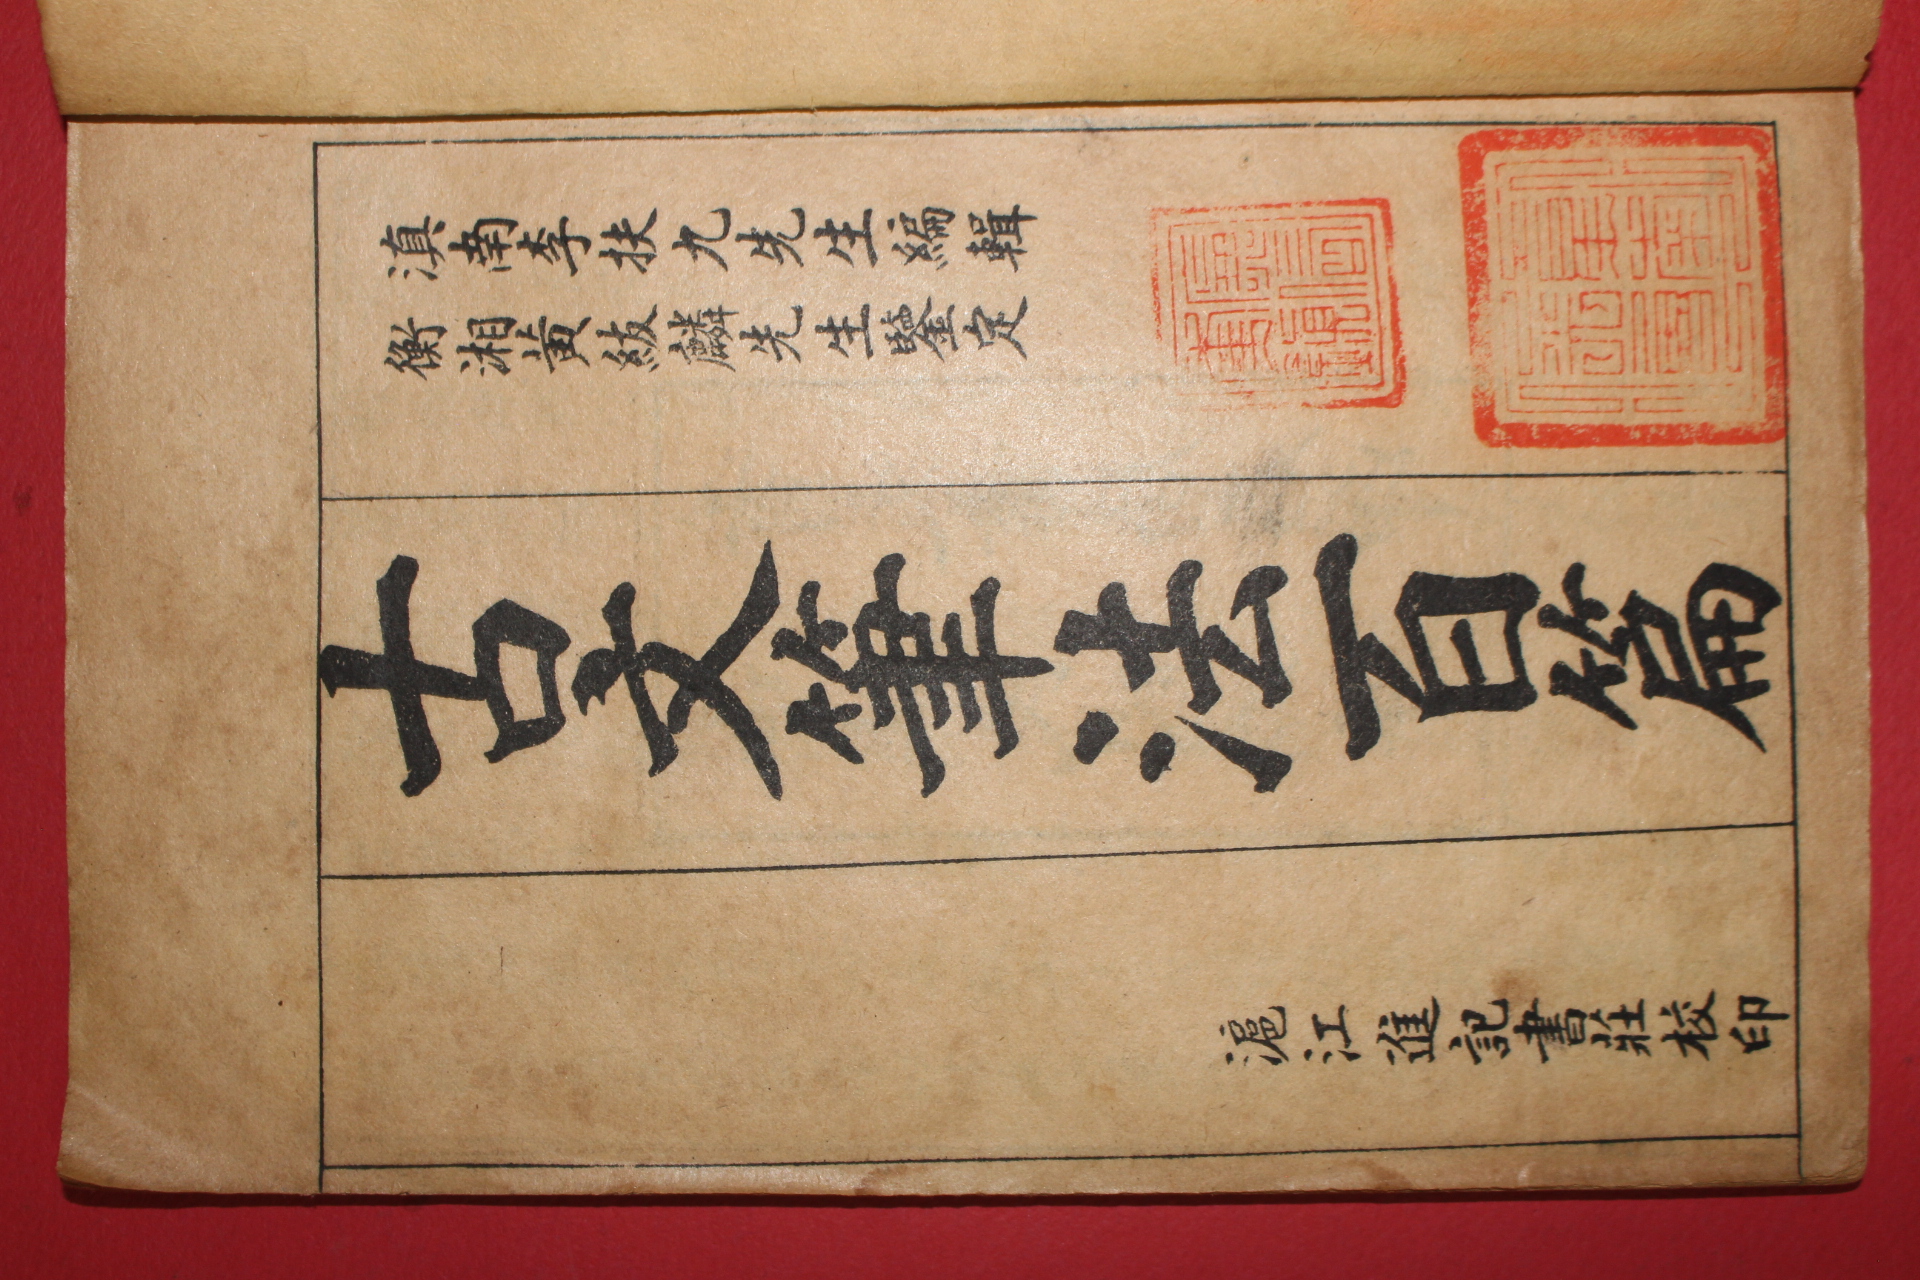 滇南李扶九先生編輯
衡湘黃紱麟先生鑒定
古文筆法百篇
滬江進記書莊校印